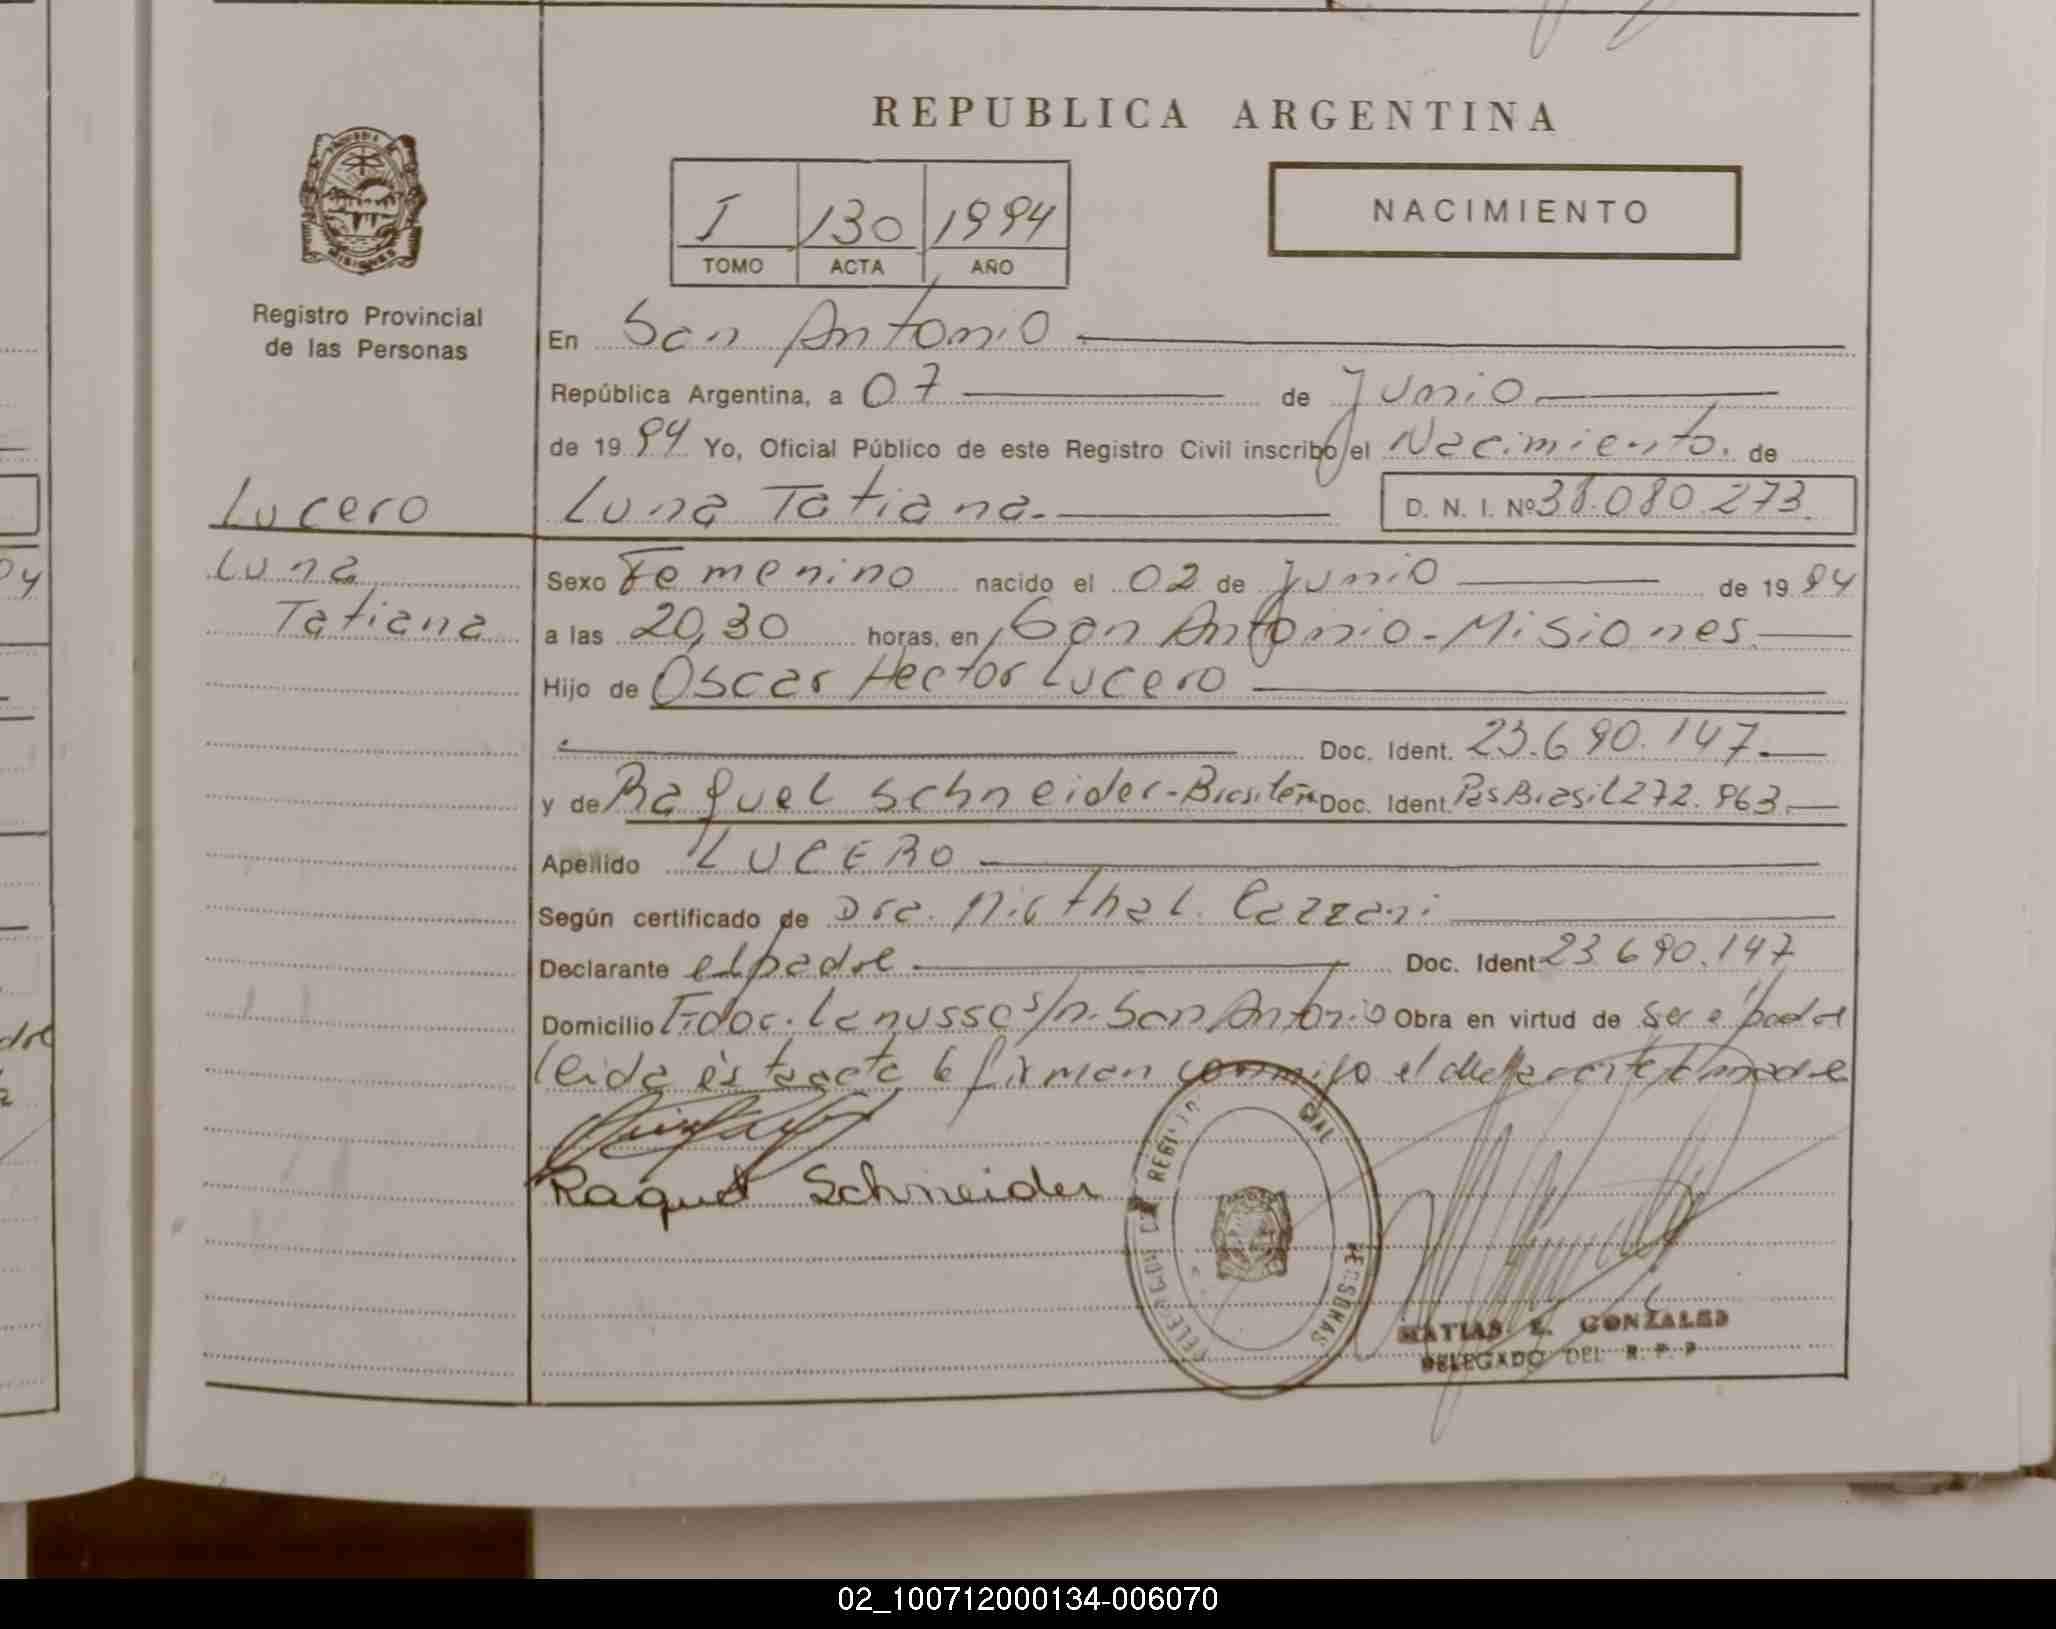 REPUBLICA ARGENTINA
I 130 1994
TOMO ACTA AÑO
NACIMIENTO
Registro Provincial
de las Personas
En San Antonio
República Argentina, a 07 de Junio
de 1994 Yo, Oficial Público de este Registro Civil inscribo el Nacimiento. de
Lucero
Luna Tatiana.
D. N. I. Nº 38.080.273.
Luna
Tatiana
Sexo Femenino nacido el 02 de Junio de 1994
a las 20,30 horas, en San Antonio - Misiones.
Hijo de Oscar Hector Lucero
Doc. Ident. 23.690.147.
y de Raquel Schneider - Brasileña Doc. Ident. Pas Brasil 272.963.
Apellido LUCERO
Según certificado de Dra. Mirtha L. Cazzani
Declarante el padre Doc. Ident 23.690.147
Domicilio Fdor. Lanusse s/n. San Antonio Obra en virtud de ser el padre
leida esta acta la firman conmigo el declarante madre
Raquel Schneider
REGISTRO PERSONAS
MATIAS E. GONZALES
DELEGADO DEL R. P. P
02_100712000134-006070